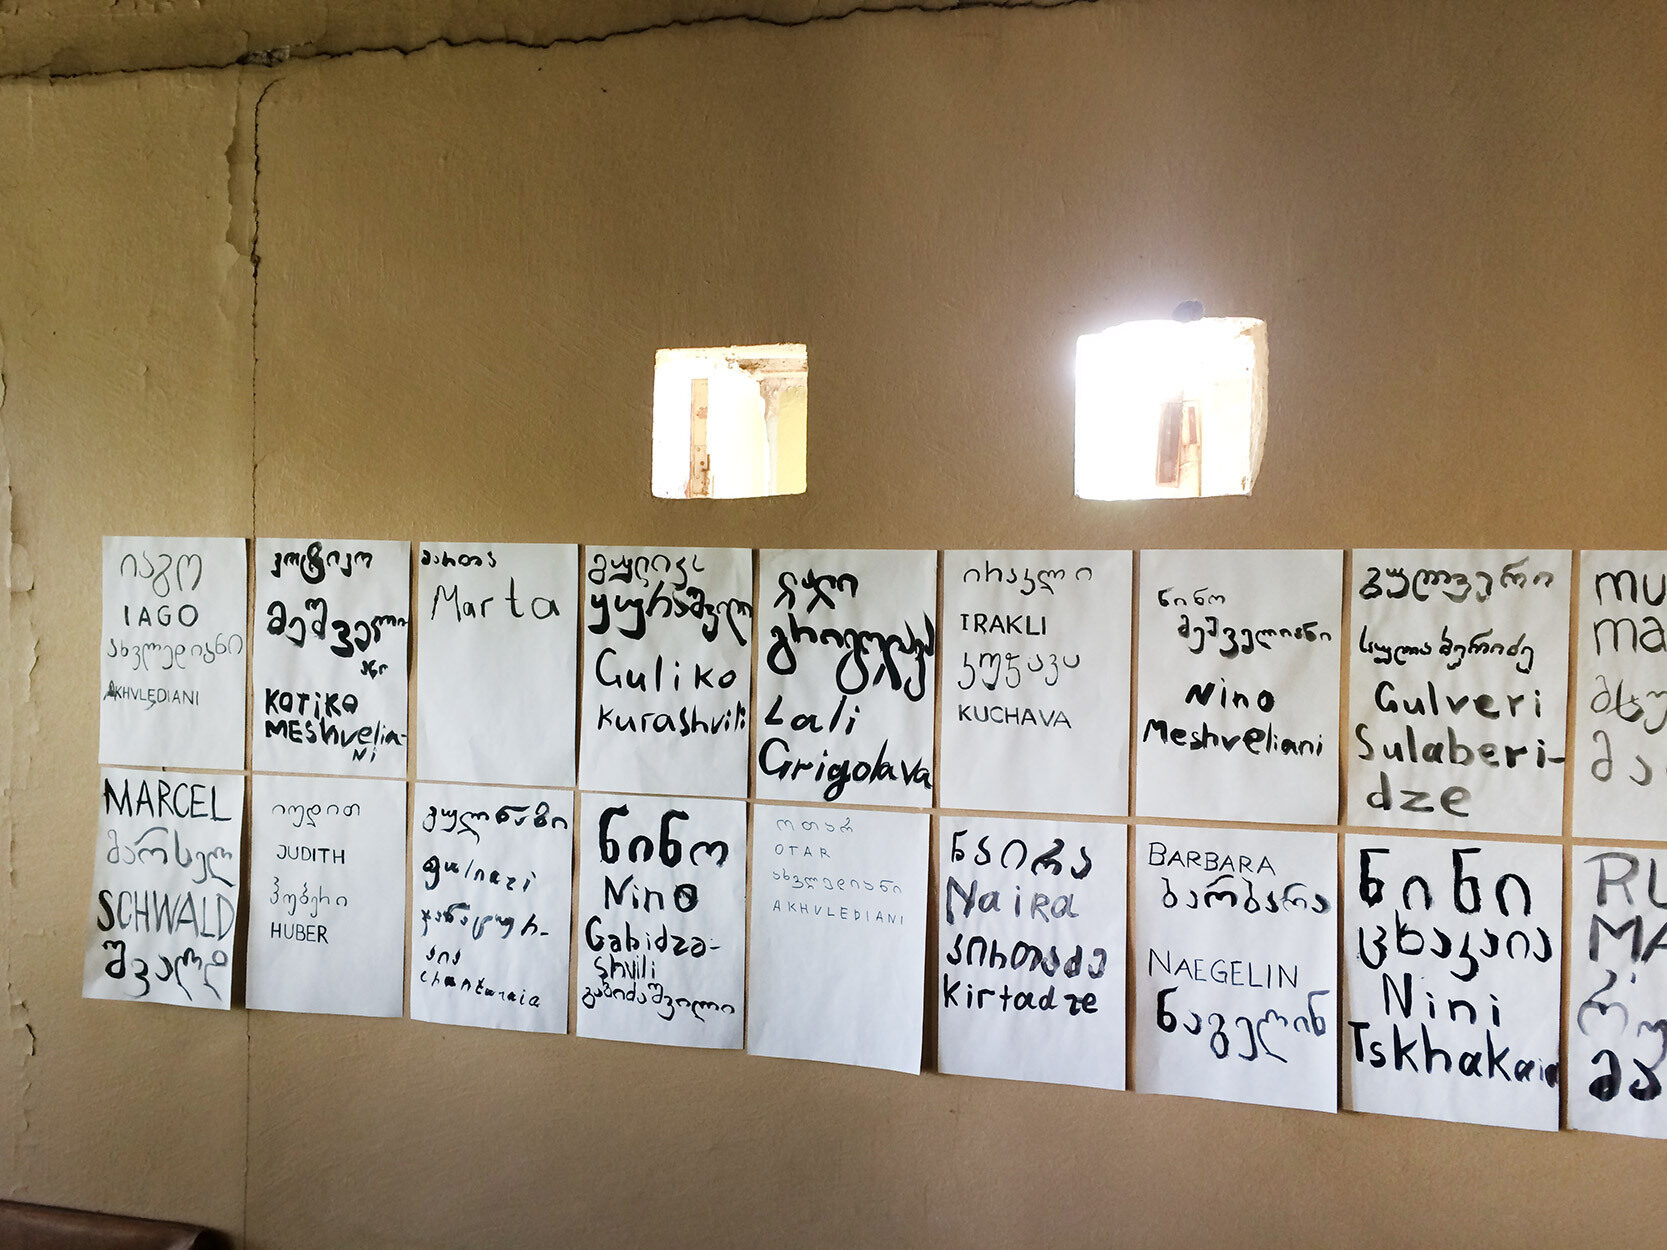 იაგო
IAGO
ახვლედიანი
AKHVLEDIANI
კოტიკო
მეშველი
ანი
KOTIKO
MESHvelia-
Ni
მართა
Marta
გულიკო
ყურაშვილი
Guliko
Kurashvili
ლალი
გრიგოლავა
Lali
Grigolava
ირაკლი
IRAKLI
კუჭავა
KUCHAVA
ნინო
მეშველიანი
Nino
Meshveliani
გულვერი
სულაბერიძე
Gulveri
Sulaberi-
dze
MARCEL
მარსელ
SCHWALD
შვალდ
იუდით
JUDITH
ჰუბერი
HUBER
გულნაზი
gulnazi
ჯანტურ-
აია
chanturaia
ნინო
Nino
Gabidza-
shvili
გაბიძაშვილი
ოთარ
OTAR
ახვლედიანი
AKHVLEDIANI
ნაირა
Naira
კირთაძე
Kirtadze
BARBARA
ბარბარა
NAEGELIN
ნაგელინ
ნინი
ცხაკაია
Nini
Tskhakaia